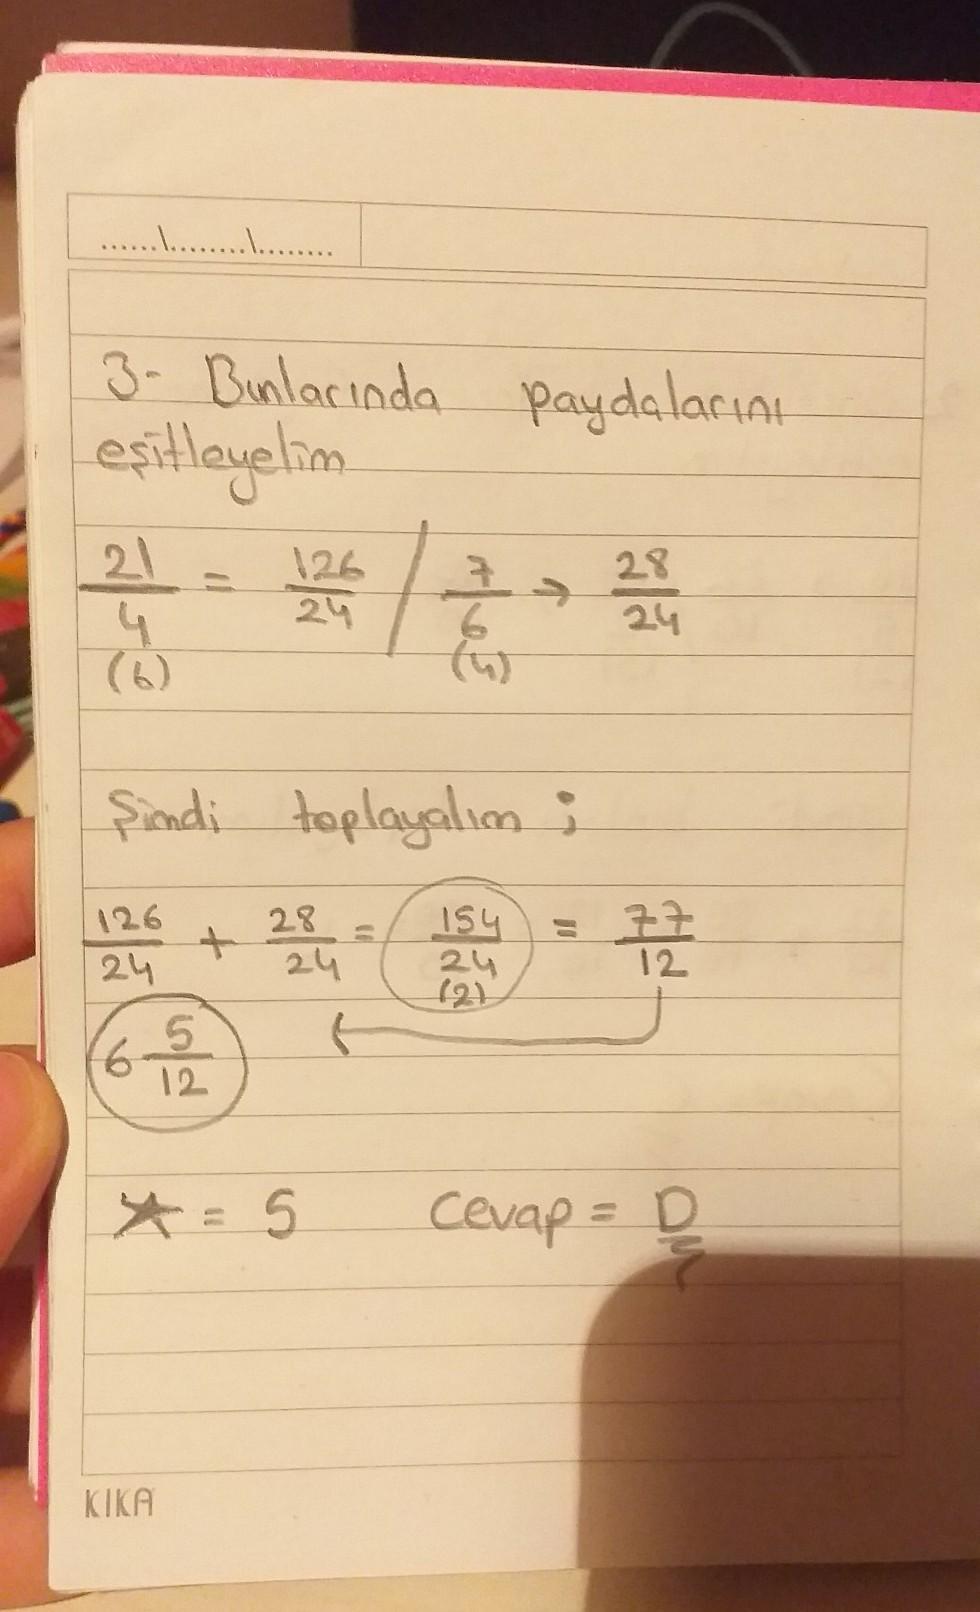 ......\.........\........
3- Bunlarında paydalarını
eşitleyelim
21/4 = 126/24 / 7/6 → 28/24
(6) (4)
Şimdi toplayalım ;
126/24 + 28/24 = 154/24 = 77/12
(2)
6 5/12
★ = 5 Cevap = D
KIKA